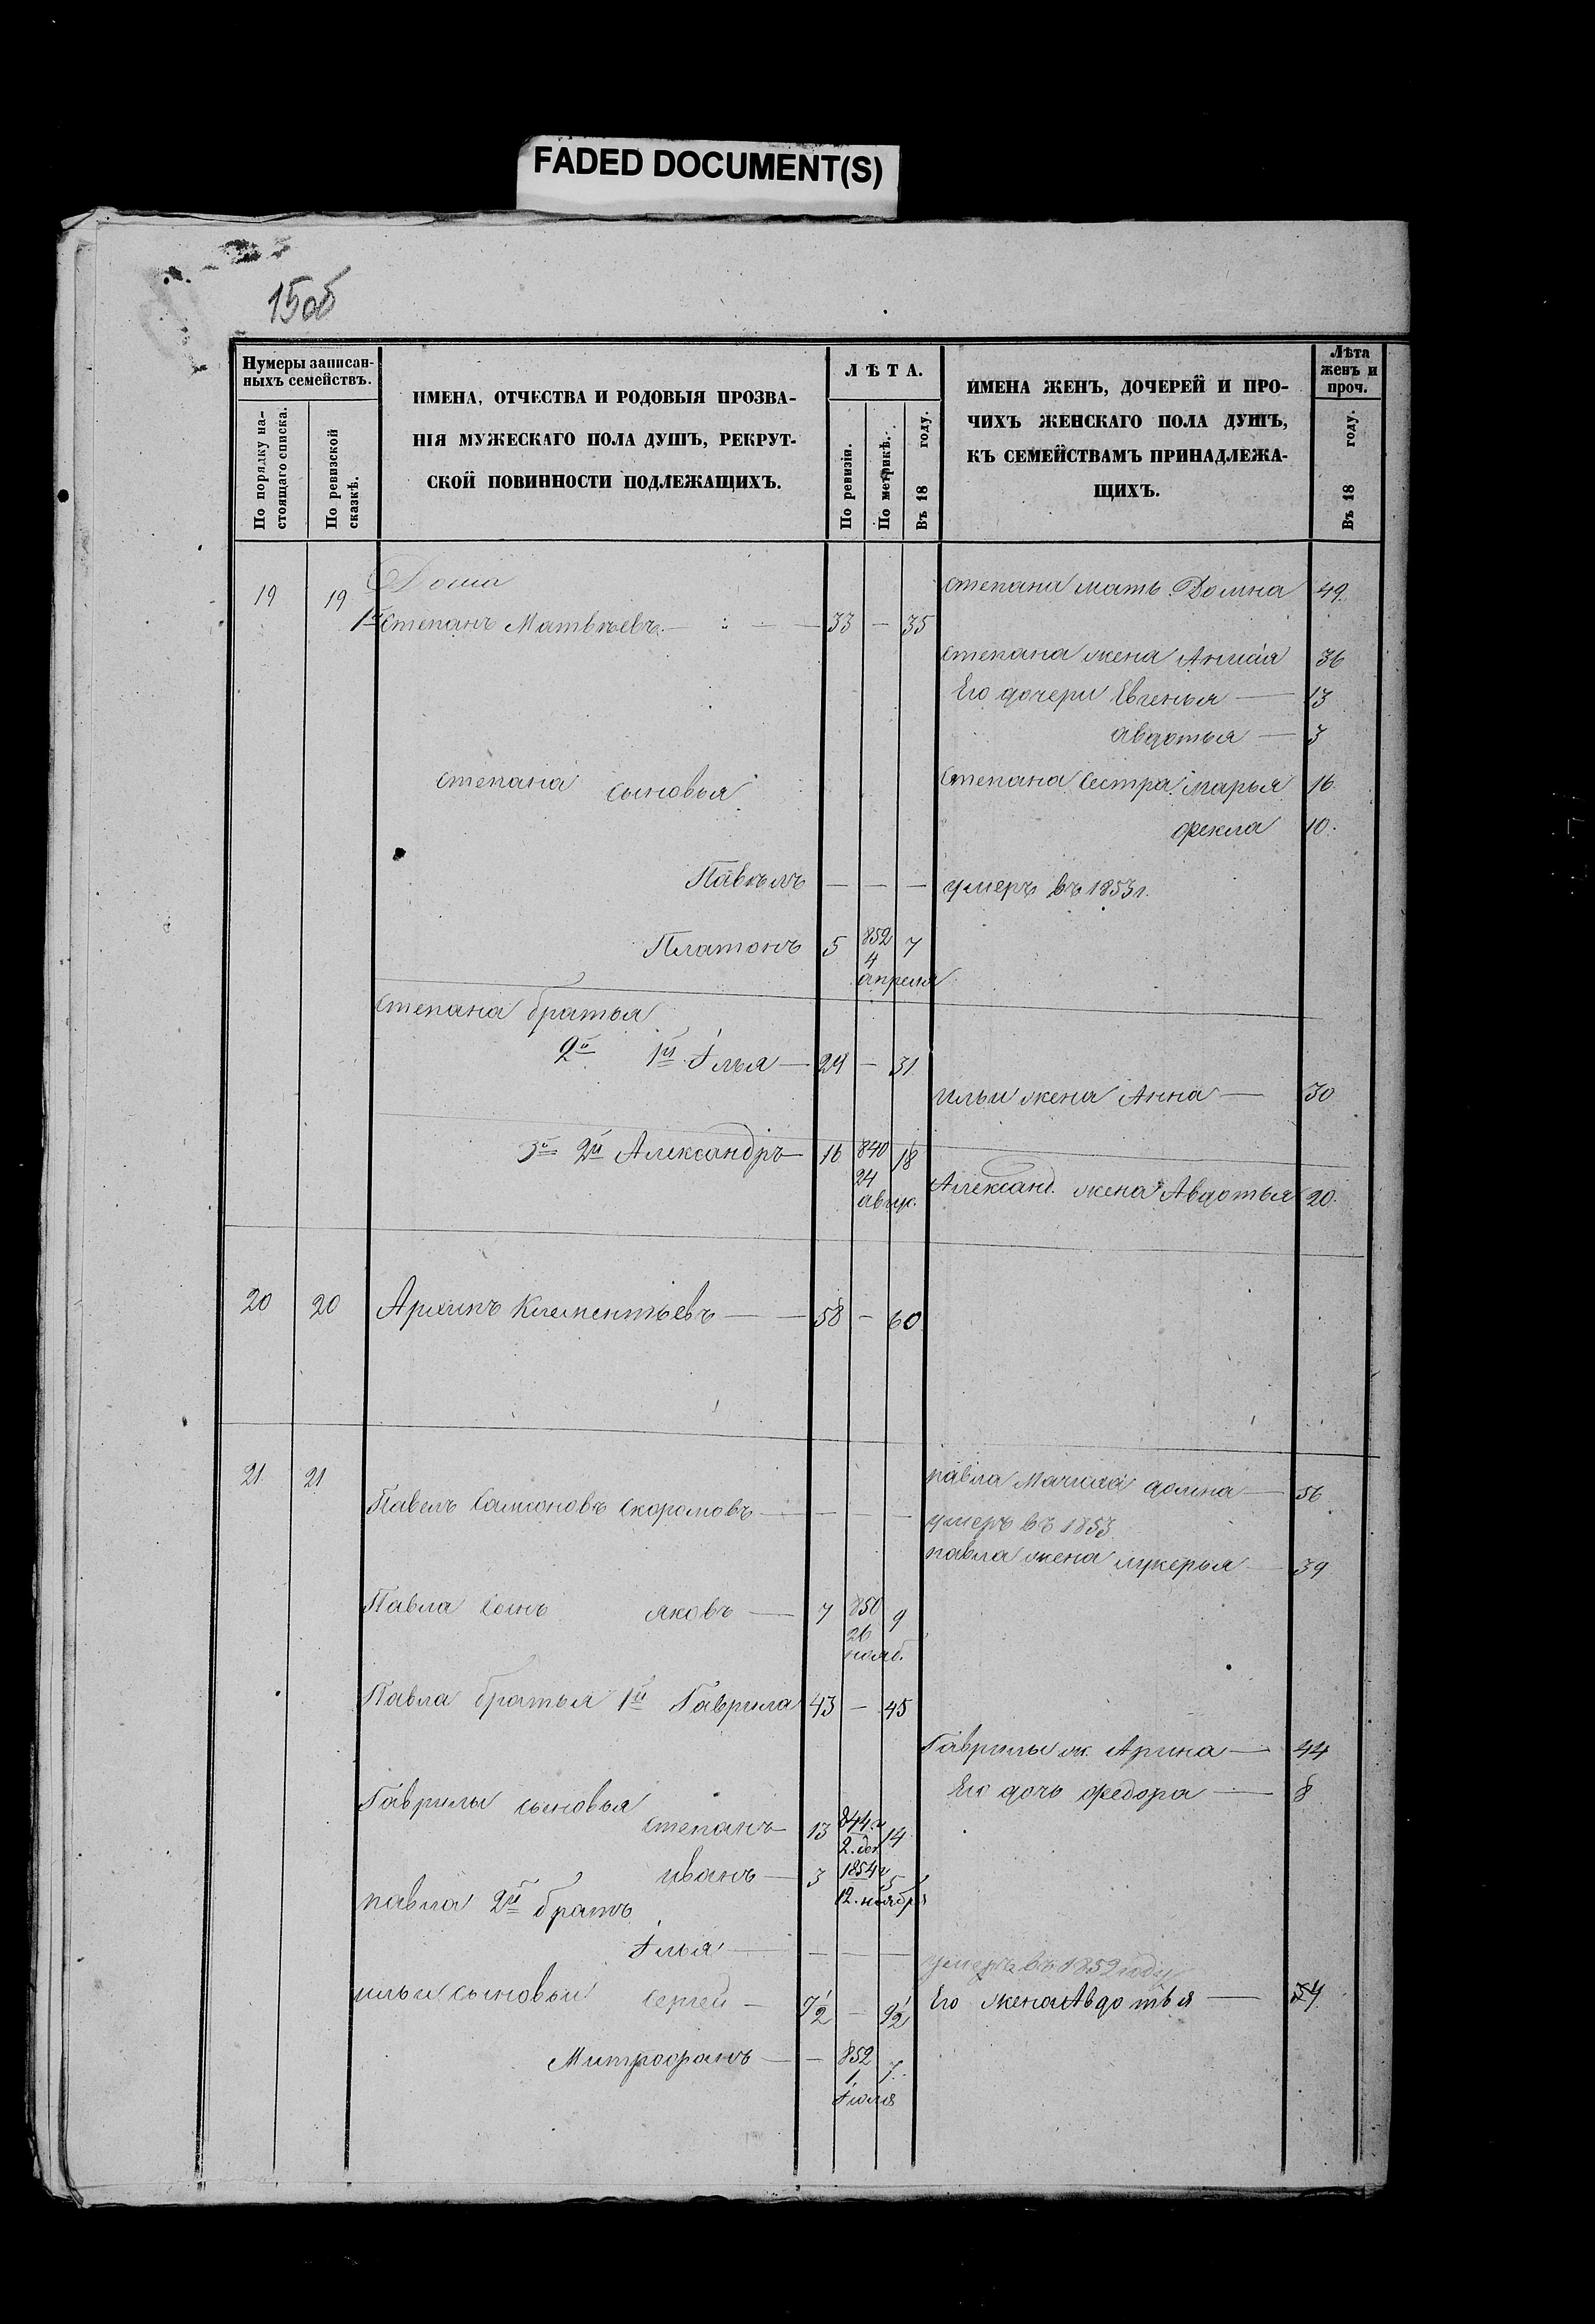 FADED DOCUMENT(S)
15об
Нумеры записан-
ныхъ семействъ.
По порядку на-
стоящаго списка.
По ревизской
сказкѣ.
ИМЕНА, ОТЧЕСТВА И РОДОВЫЯ ПРОЗВА-
НІЯ МУЖЕСКАГО ПОЛА ДУШЪ, РЕКРУТ-
СКОЙ ПОВИННОСТИ ПОДЛЕЖАЩИХЪ.
ЛѢТА.
По ревизіи.
По метрикѣ.
Въ 18 году.
ИМЕНА ЖЕНЪ, ДОЧЕРЕЙ И ПРО-
ЧИХЪ ЖЕНСКАГО ПОЛА ДУШЪ,
КЪ СЕМЕЙСТВАМЪ ПРИНАДЛЕЖА-
ЩИХЪ.
Лѣта
женъ и
проч.
Въ 18 году.
19 19
степана мать Домна 49.
1й степанъ Матвѣевъ — 33 — 35
степана жена 36
Его дочери Евгенья — 13
авдотья — 3
степана сыновья
степана сестра марья 16
фекла 10.
— — — умеръ въ 1853 г.
Платонъ 5 852 7
4
апреля
степана братья
2й 1й Илья — 29 — 31
ильи жена Анна — 30
3й 2й Александръ — 16 840 18
24
авгус.
Александ. жена Авдотья 20.
20 20 Архипъ Клементьевъ — — 58 — 60
21 21
павла Мачиха домна — 56
Павелъ Самсоновъ скоромовъ — — — —
умеръ въ 1853
павла жена лукерья — 39
Павла сынъ яковъ — 7 850 9
26
нояб.
Павла братья 1й Гаврила 43 — 45
Гаврилы ж. Арина — 44
Его дочь федора — 8
Гаврилы сыновья
степанъ 13 844 г 14
2. дек
иванъ — 3 1854 г 5
12. ноября
павла 2й братъ
Илья — — — — умеръ въ 1852 году
ильи сыновьи сергей — 7½ — 9½
Его жена Авдотья —
Митрофанъ — — 852 7.
1
Іюля